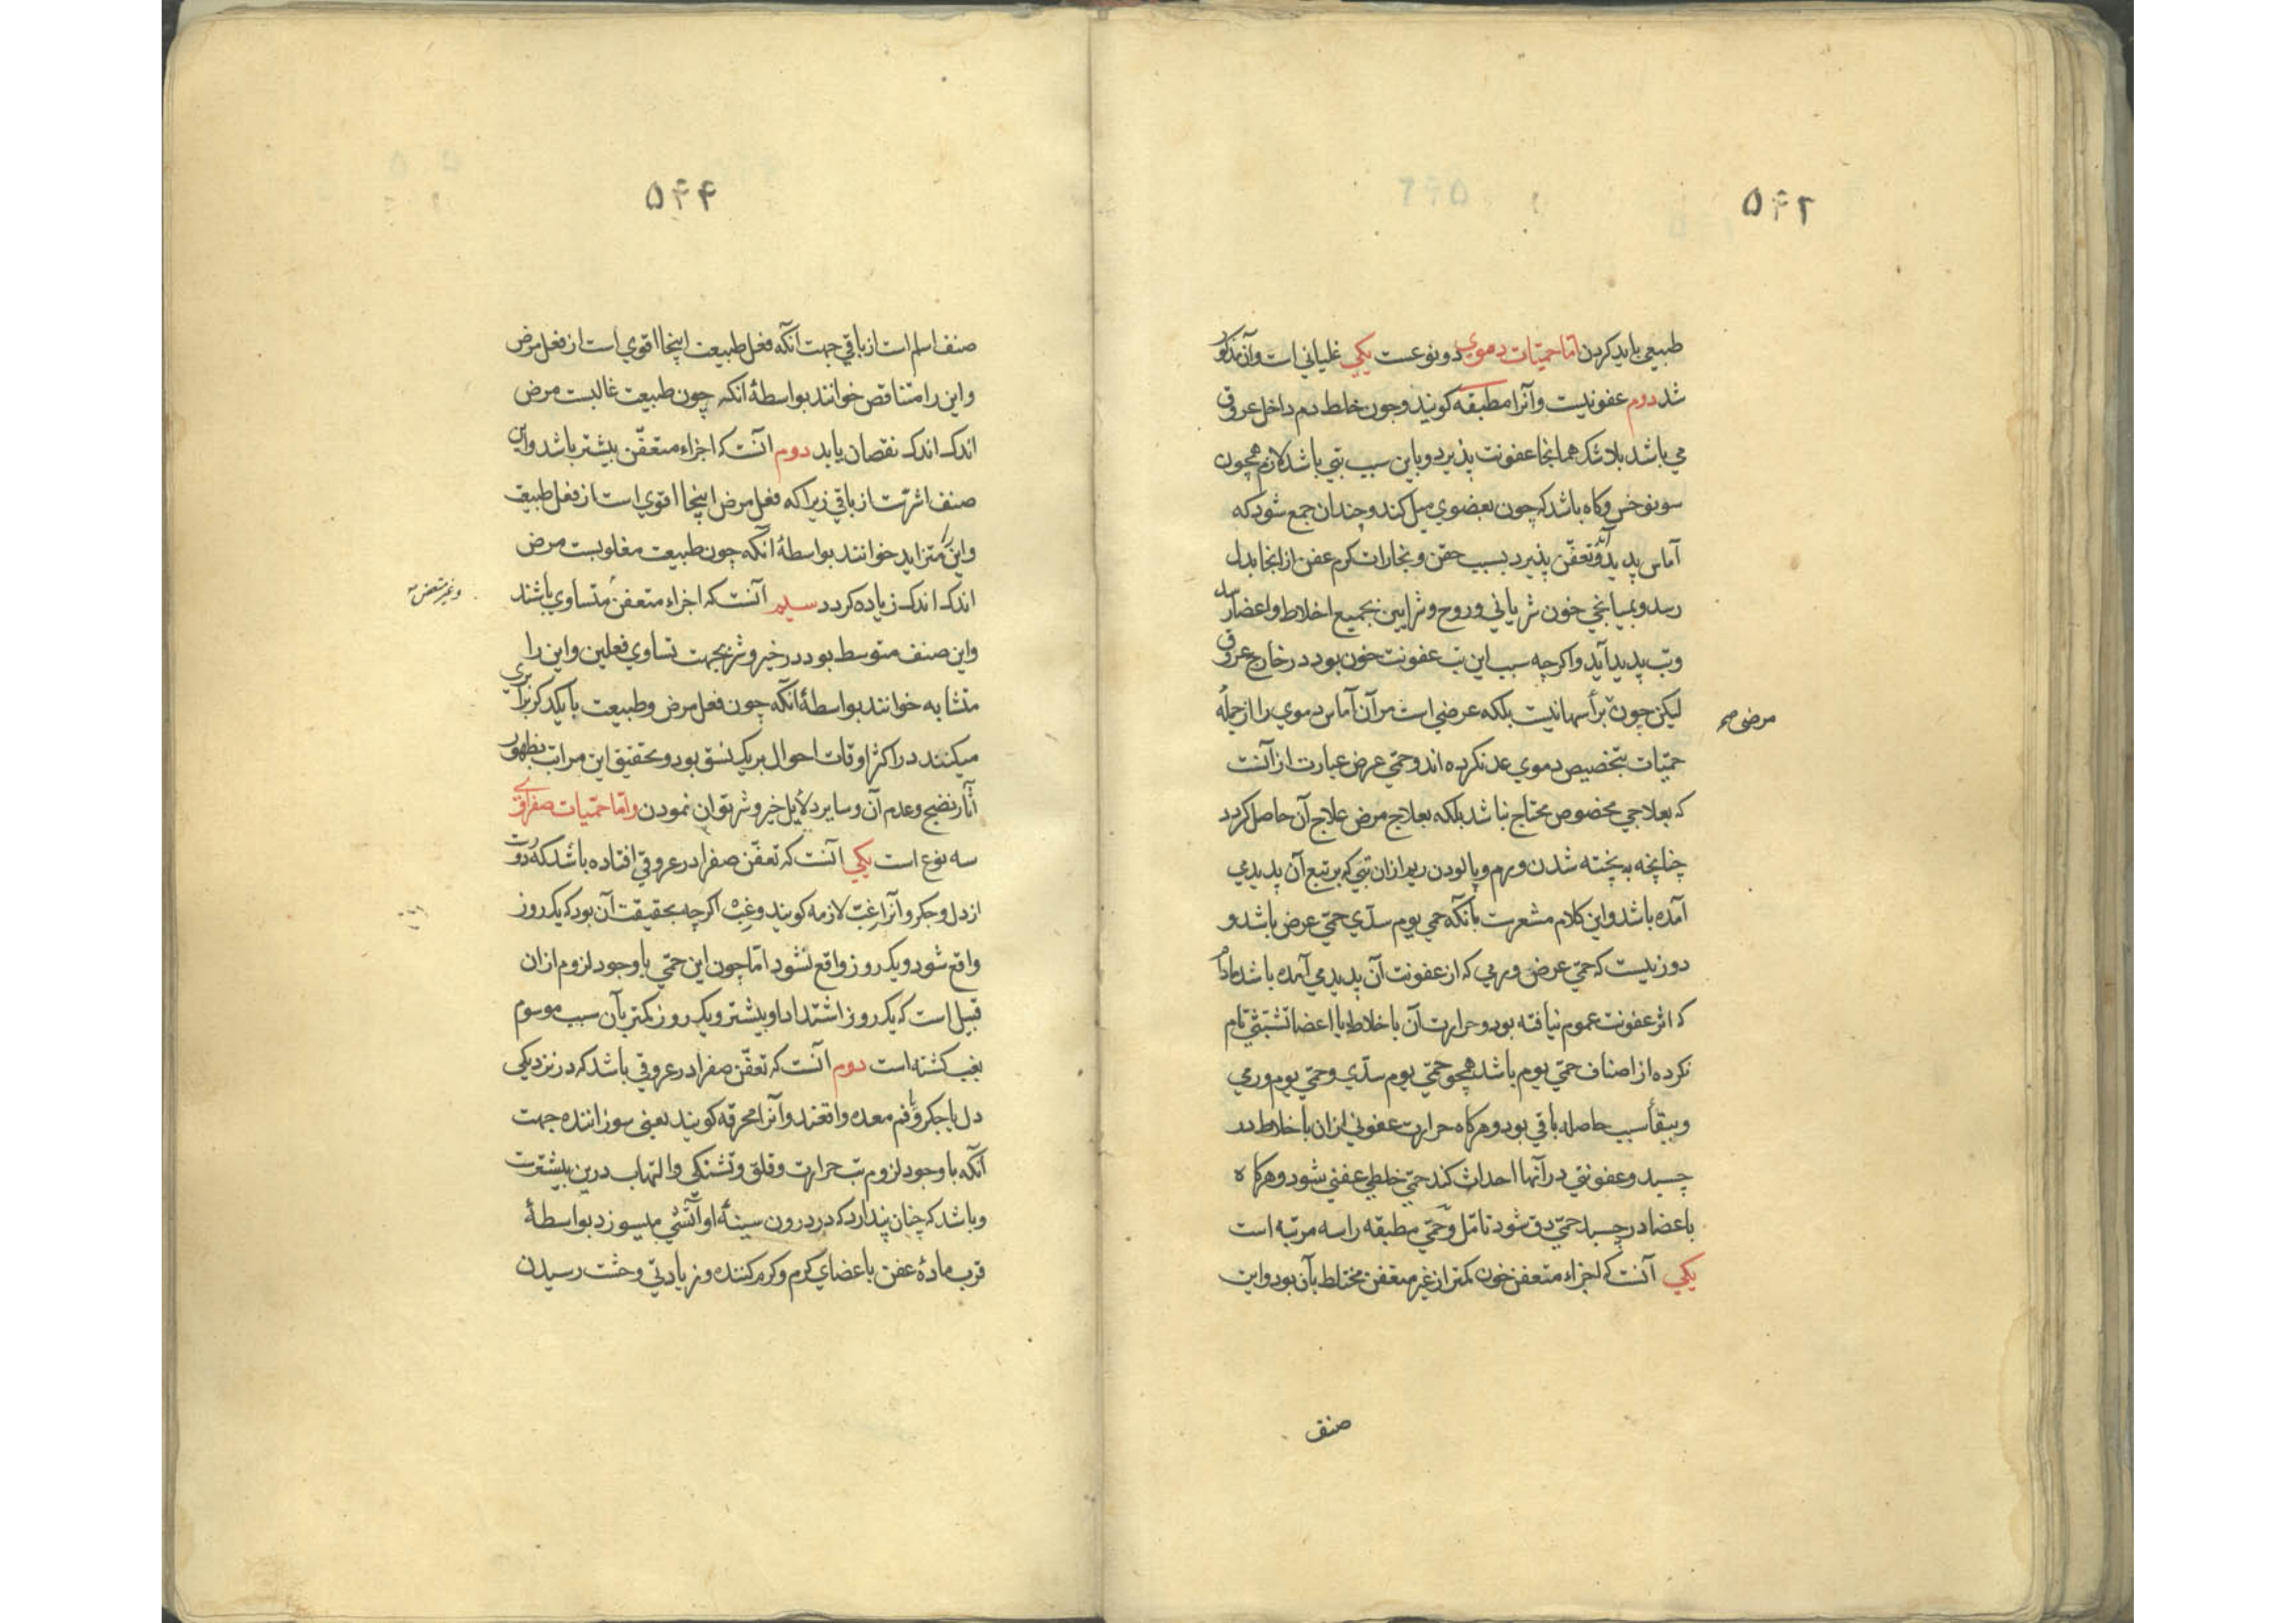 ۵۴۲
طبیعی باید کردن اما حمیّات دموی دو نوعست یکی غلیانی است و آن مذکور
شد دوم عفونیست و آنرا مطبقه کویند و چون خلط دم داخل عروق
می باشد بلاشک همانجا عفونت پذیرد و باین سبب تبی باشد لازم همچون
سونوخس و کاه باشد که چون بعضوی میل کند و چندان جمع شود که
آماس پدید آید و تعفّن پذیرد بسبب حقن و بخارات کرم عفن از انجا بدل
رسد و بمیانجی خون شریانی و روح و شرایین بجمیع اخلاط و اعضا رسد
و تب پدید آید و اکرچه سبب این تب عفونت خون بود در خارج عروق
لیکن چون برأسها نیست بلکه عرضی است مر آن آماس دموی را از جملهٔ
مرضی صح
حمّیات بتخصیص دموی عد نکرده اند و حمّی عرض عبارت از آنست
که بعلاجی مخصوص محتاج نباشد بلکه بعلاج مرض علاج آن حاصل کردد
چنانچه به پخته شدن ورم و پالودن ریم ازان تبی که بر تبع آن پدیدمی
آمده باشد و این کلام مشعرست بانکه حمی یوم سدّی حمّی عرض باشد و
دور نیست که حمّی عرض ورمی که از عفونت آن پدید می آمده باشد مادام
که اثر عفونت عموم نیافته بود و حرارت آن باخلاط یا اعضا تشبّثی تام
نکرده از اصناف حمّی یوم باشد همچو حمّی یوم سدّی و حمّی یوم ورمی
و ببقأ سبب حاصله باقی بود و هرکاه حرارت عفونی ازان باخلاط در
چسبد و عفونتی در آنها احداث کند حمّی خلطی عفنی شود و هرکاه
باعضا در چسبد حمّی دق شود تامّل و حمّی مطبقه را سه مرتبه است
یکی آنست که اجزاء متعفن خون کمتر از غیر متعفن مختلط بآن بود و این
صنف
۵۴۴
صنف اسلم است از باقی جهت آنکه فعل طبیعت اینجا اقوی است از فعل مرض
و این را متناقص خوانند بواسطهٔ آنکه چون طبیعت غالبست مرض
اندک اندک نقصان یابد دوم آنست که اجزاء متعفّن بیشتر باشد و این
صنف اشرّست از باقی زیرا که فعل مرض اینجا اقوی است از فعل طبیعت
و این را متزاید خوانند بواسطهٔ آنکه چون طبیعت مغلوبست مرض
اندک اندک زیاده کردد سیم آنست که اجزاء متعفن متساوی باشند
و غیر متعفن صح
و این صنف متوسط بود در خیر و شر بجهت تساوی فعلین و این را
متشابه خوانند بواسطهٔ آنکه چون فعل مرض و طبیعت با یکدکر برابری
میکنند در اکثر اوقات احوال بر یک نسق بود و تحقیق این مراتب بظهور
آثار نضج و عدم آن و سایر دلایل خیر و شر توان نمودن و امّا حمّیات صفراوی
سه نوع است یکی آنست که تعفّن صفرا در عروقی افتاده باشد که دورست
از دل و جکر و آنرا غبّ لازمه کویند و غبّ اکرچه بحقیقت آن بود که یک روز
واقع شود و یک روز واقع نشود امّا چون این حمّی با وجود لزوم ازان
قبیل است که یک روز اشتداد او بیشتر و یک روز کمتر بآن سبب موسوم
بغب کشته است دوم آنست که تعفّن صفرا در عروقی باشد که در نزدیکی
دل یا جکر و یا فم معده واقعند و آنرا محرقه کویند یعنی سوزاننده جهت
آنکه با وجود لزوم تب حرارت و قلق و تشنکی و التهاب درین بیشترست
و باشد که چنان پندارد که در درون سینهٔ او آتشی میسوزد بواسطهٔ
قرب مادهٔ عفن باعضای کرم و کرم کننده و زیادتی وحشت رسیدن